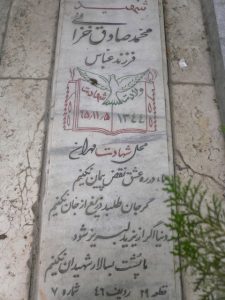 شهید
محمد صادق خزائی
فرزند عباس
ولادت شهادت
۶۵/۱۱/۵ ۱۳۴۴
محل شهادت
ما در ره عشق نقض پیمان نکنیم
گر جان طلبد دریغ از جان نکنیم
دنیا اگر از یزید لبریز شود
ما پشت به سالار شهیدان نکنیم
قطعه ۲۹ ردیف ۴۶ شماره ۷